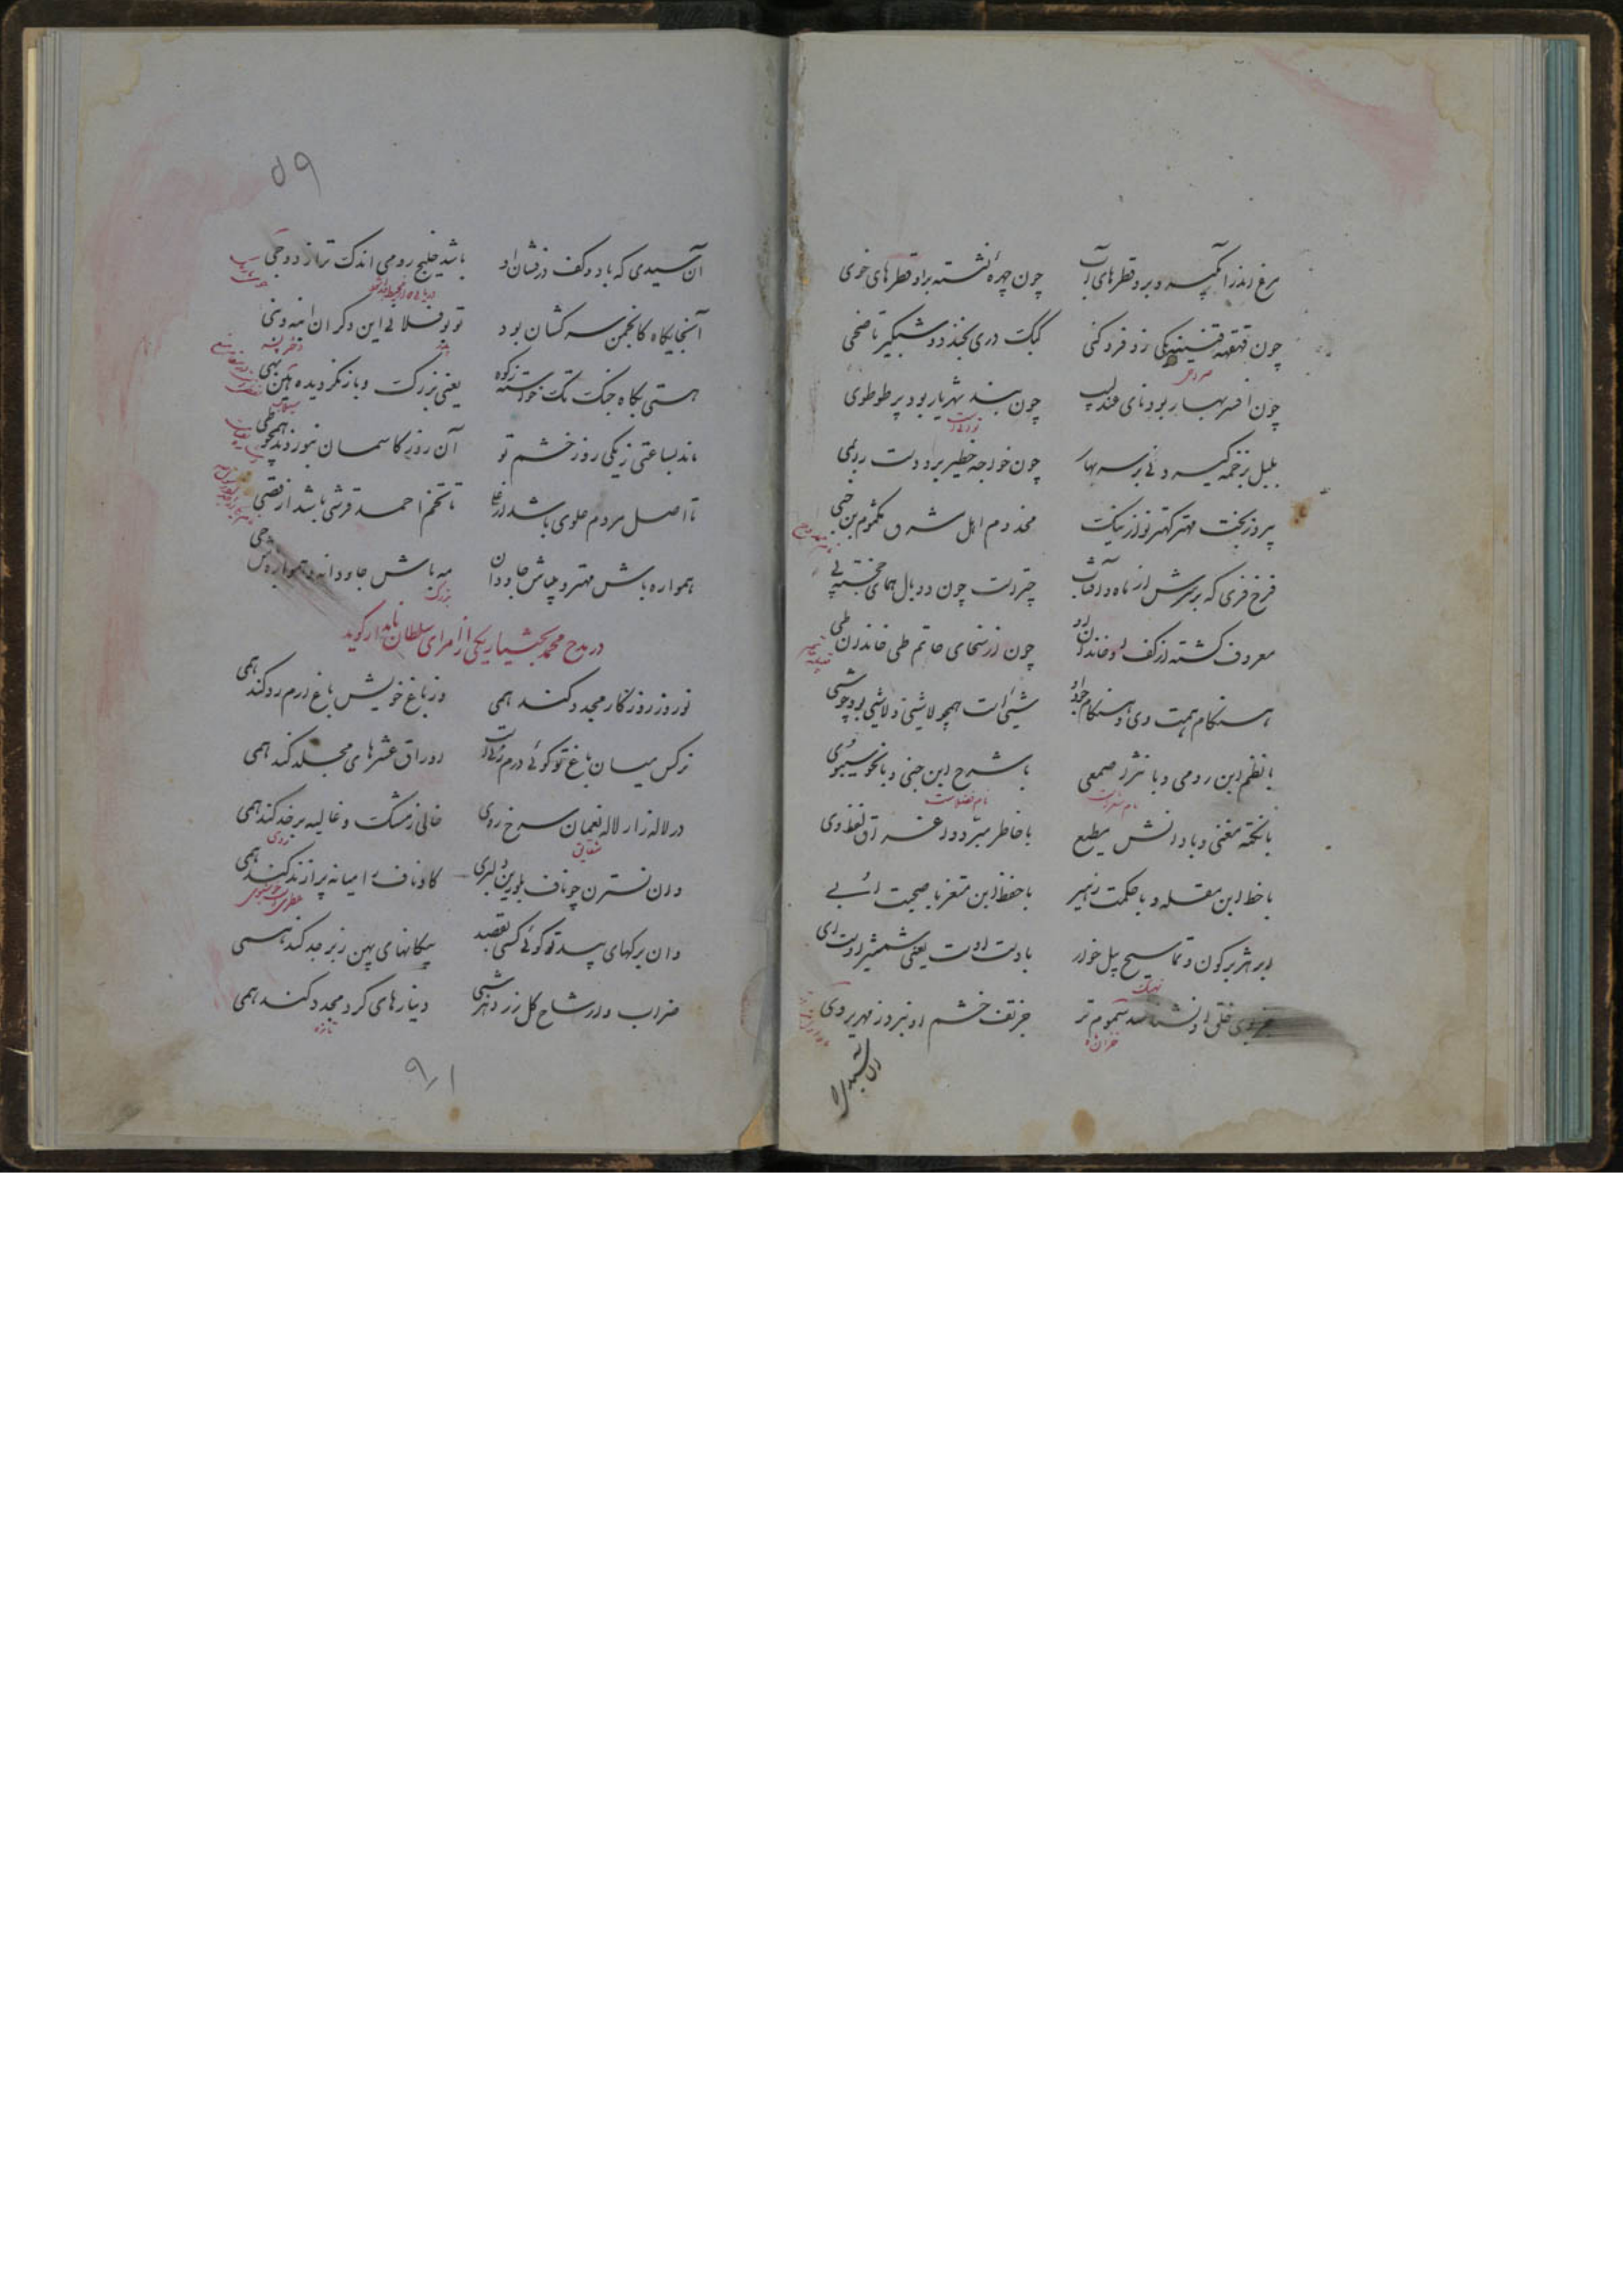 مرغ اندر آبگیر و برو قطرهای آب چون چهرهٔ نشسته براو قطرهای خوی
چون قهقهه قنینه که می زو فرو کنی کبک دری بخندد و شبگیر تا ضحی
چون افسر بهار بود نای عندلیب چون بند شهریار بود پر طوطوی
بلبل بزخمه گیرد نی بر سر بهار چون خواجه خطیر برد دست را بمی
پیروزبخت مهتر کهتر نواز نیک مخدوم اهل شرق مکثوم بن حیی
فرخ فری که بر سرش از ماه و آفتاب چتریست چون دو بال همای خجسته پی
معروف گشته از کف او خاندان او چون از سخای حاتم طی خاندان طی
هنگام همت وی و هنگام جود او شیئی است همچو لاشیئی و لاشیئی بود چو شیئی
با نظم ابن رومی و با نثر اصمعی با شرح ابن جنی و با نحو سیبوی
نام شعراست نام فضلاست
با نکتهٔ مغنی و با دانش مطیع با خاطر مبرد و اغراق لفظ وی
با خط ابن مقله و با حکمت زهیر با حفظ ابن معتز با صحبت ابی
ابر هژبرگون و تماسیح پیل خوار با دست اوست یعنی شمشیر اوست ای
نهنگ
خلق او نشناسد سموم تیر جز تف خشم او نبرد زمهریر دی
آن سیدی
۵۹
آن سیدی که باد و کف درفشان او باشد خلیج رومی اندک تر از دوجی
آنجایگاه کانجمن سرکشان بود تو بوفلانی این دگران ابنه و بنی
هستی بگاه جنگ تک خواسته زکوه یعنی بزرگ و باز نگردیده
ماند بساعتی ز یکی روز خشم تو آن روز کاسمان بنوردند همچو طی
تا اصل مردم علوی باشد از علی تا تخم احمد قرشی باشد از قصی
همواره باش مهتر و میباش جاودان مه باش جاودانه و همواره باش حی
بزرگ
در مدح محمد بختیار یکی از امرای سلطان نامدار گوید
نوروز روزگار مجدد کند همی وز باغ خویش باغ ارم رد کند همی
نرگس میان باغ تو گوئی درم زنی است اوراق عشرهای مجلد کند همی
در لاله زار لاله نعمان سرخ روی خالی ز مشک و غالیه بر خد کند همی
شقایق روی
وان نسترن چو ناف بلورین دلبری کاو ناف را میانه پر از ند کند همی
وان برگهای بید تو گوئی کسی بقصد پیکانهای پهن زبرجد کند همی
ضراب وار شاخ گل زرد هر شبی دینارهای گرد مجدد کند همی
تازه
۹۱